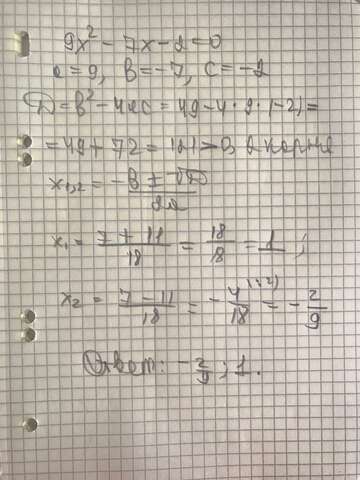 9x² - 7x - 2 = 0
a = 9, b = -7, c = -2
D = b² - 4ac = 49 - 4 · 9 · (-2) =
= 49 + 72 = 121 > 0, 2 корня
x₁,₂ = (-b ± √D) / 2a
x₁ = (7 + 11) / 18 = 18/18 = 1 ;
x₂ = (7 - 11) / 18 = - 4/18 (:2) = - 2/9
Ответ: - 2/9 ; 1.